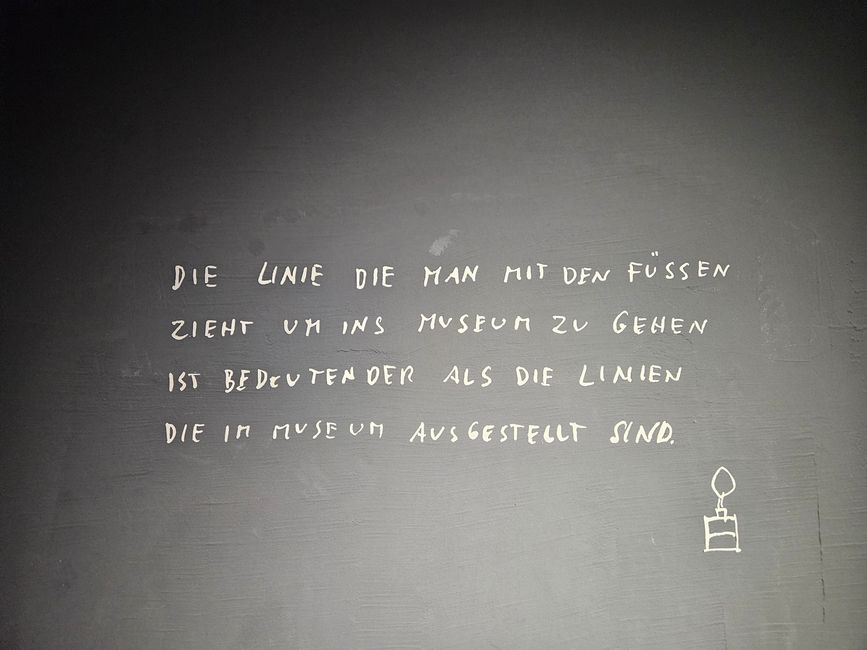 DIE LINIE DIE MAN MIT DEN FÜSSEN
ZIEHT UM INS MUSEUM ZU GEHEN
IST BEDEUTENDER ALS DIE LINIEN
DIE IM MUSEUM AUSGESTELLT SIND.